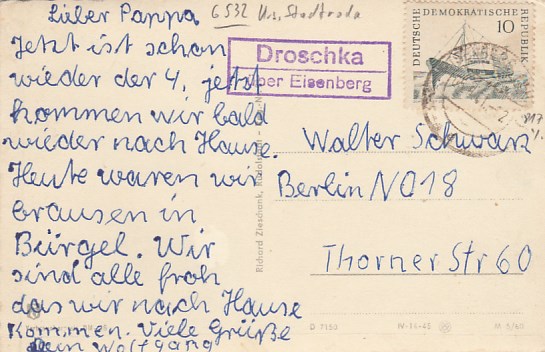 Lieber Pappa
Jetzt ist schon
wieder der 4, jetzt
kommen wir bald
wieder nach Hause.
Heute waren wir
brausen in
Bürgel. Wir
sind alle froh
das wir nach Hause
kommen. Viele Grüße
Dein Wolfgang
6532 Stadtroda
Droschka
über Eisenberg
DEUTSCHE DEMOKRATISCHE REPUBLIK
10
Walter Schwarz
Berlin NO18
Thorner Str 60
Richard Zieschank, Rudolstadt
D 7150
M 5/60